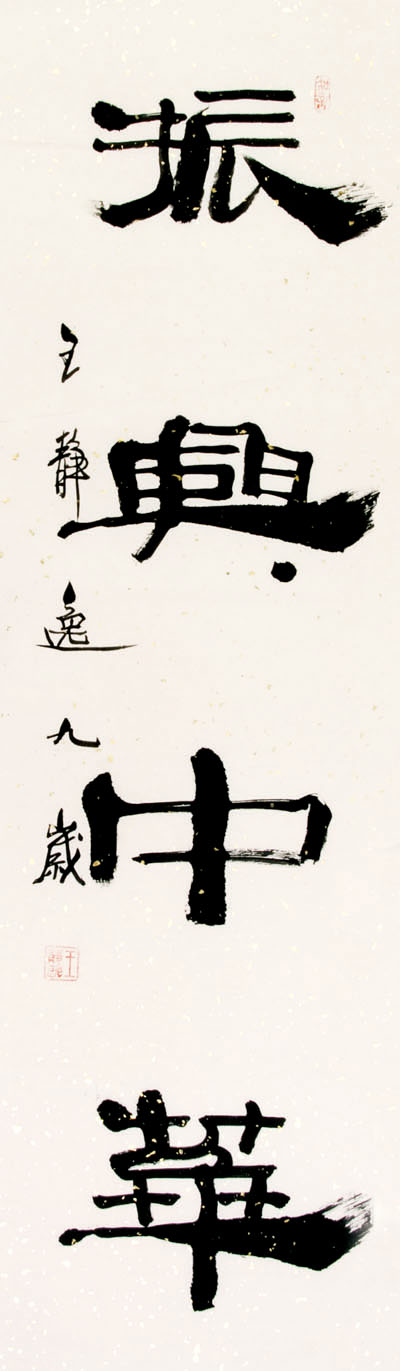 振興中華
王靜逸九歲